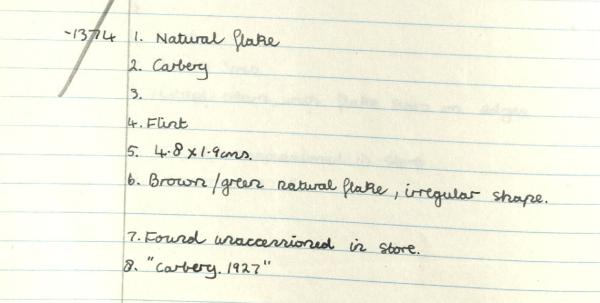 -1374 1. Natural flake
2. Carbery
3.
4. Flint
5. 4.8 x 1.9cms.
6. Brown/green natural flake, irregular shape.
7. Found unaccessioned in store.
8. "Carbery. 1927"